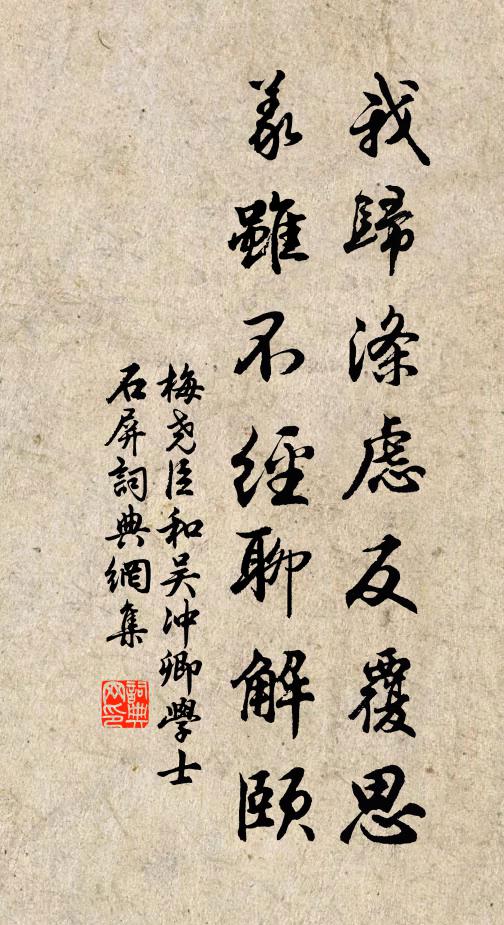 我歸滌慮反覆思
義雖不經聊解頤
梅堯臣和吴冲卿學士
石屏詞典網集
詞典网印